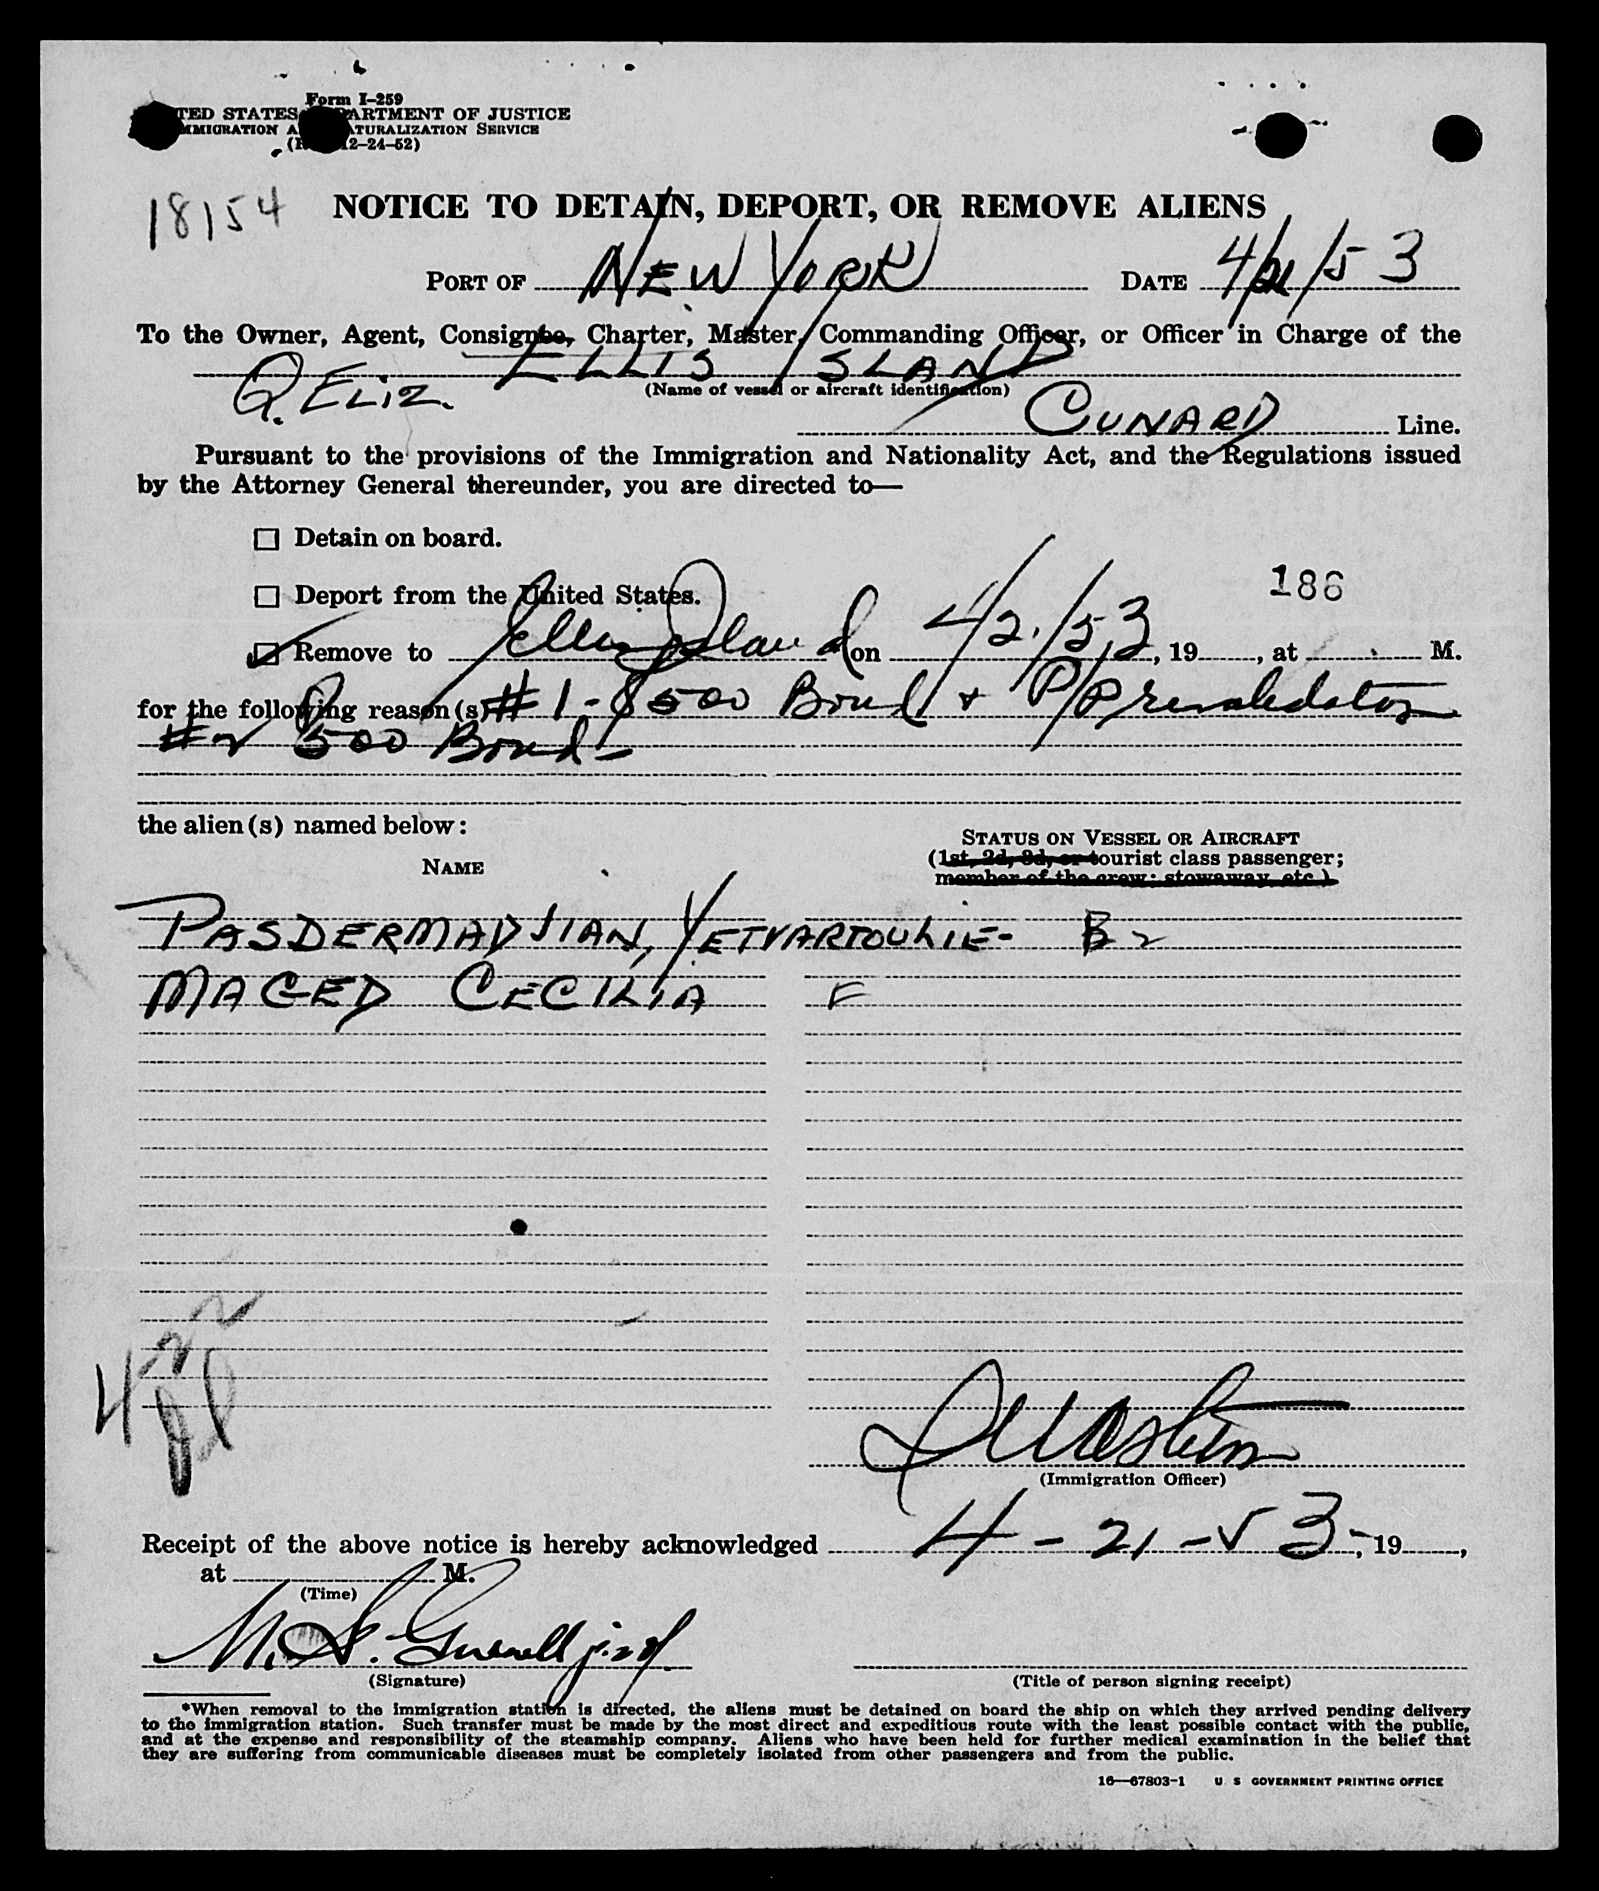 Form I-259
TED STATES PARTMENT OF JUSTICE
MMIGRATION A ATURALIZATION SERVICE
12-24-52)
18154
NOTICE TO DETAIN, DEPORT, OR REMOVE ALIENS
PORT OF NEW YORK DATE 4/21/53
To the Owner, Agent, Consignee, Charter, Master, Commanding Officer, or Officer in Charge of the
ELLIS ISLAND
(Name of vessel or aircraft identification)
Q. ELIZ.
CUNARD Line.
Pursuant to the provisions of the Immigration and Nationality Act, and the Regulations issued
by the Attorney General thereunder, you are directed to—
☐ Detain on board.
186
☐ Deport from the United States.
☑ Remove to Ellis Island on 4/21/53, 19 , at M.
for the following reason(s) #1-$500 Bond + PP
#2 $500 Bond-
the alien(s) named below:
STATUS ON VESSEL OR AIRCRAFT
(1st, 2d, 3d, or tourist class passenger;
member of the crew; stowaway, etc.)
NAME
PASDERMADJIAN, YETVARTOUHIE- B2
MAGED CECILIA F
4-22
(Immigration Officer)
Receipt of the above notice is hereby acknowledged 4-21-53-, 19 ,
at M.
(Time)
(Signature) (Title of person signing receipt)
*When removal to the immigration station is directed, the aliens must be detained on board the ship on which they arrived pending delivery
to the immigration station. Such transfer must be made by the most direct and expeditious route with the least possible contact with the public,
and at the expense and responsibility of the steamship company. Aliens who have been held for further medical examination in the belief that
they are suffering from communicable diseases must be completely isolated from other passengers and from the public.
16—67803-1 U S GOVERNMENT PRINTING OFFICE